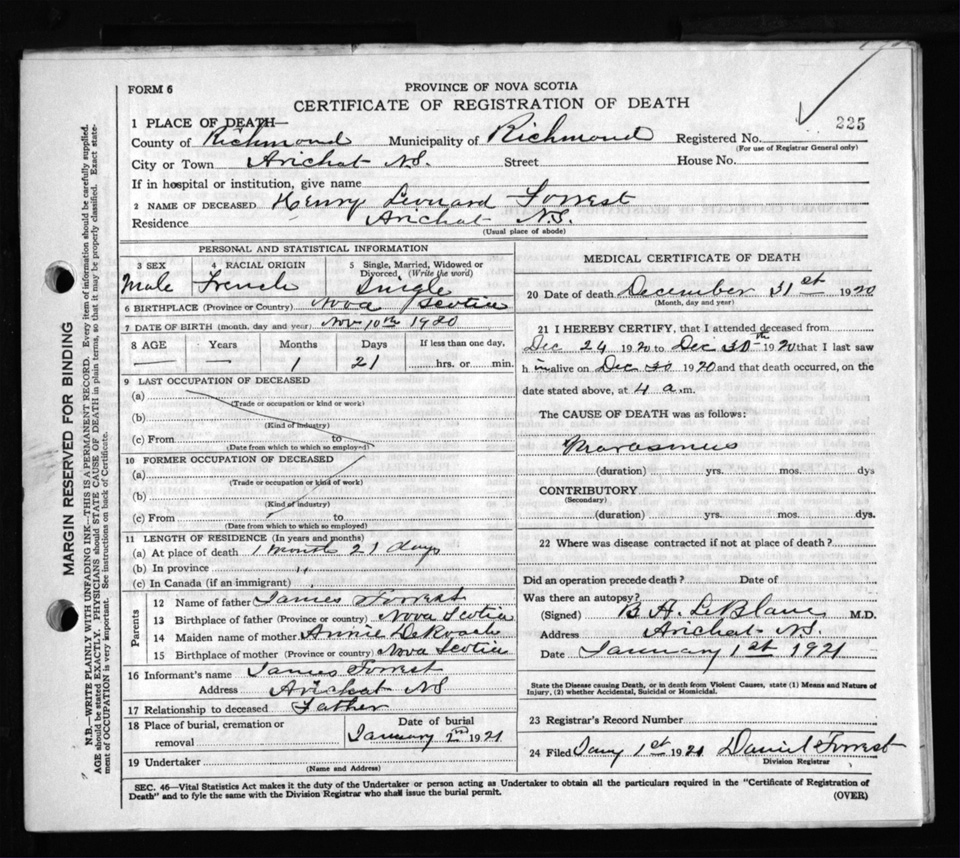 FORM 6
PROVINCE OF NOVA SCOTIA
CERTIFICATE OF REGISTRATION OF DEATH
225
1 PLACE OF DEATH—
County of Richmond Municipality of Richmond Registered No.
(For use of Registrar General only)
City or Town Arichat N.S. Street House No.
If in hospital or institution, give name
2 NAME OF DECEASED Henry Leonard Forrest
Residence Arichat N.S.
(Usual place of abode)
PERSONAL AND STATISTICAL INFORMATION
3 SEX
Male
4 RACIAL ORIGIN
French
5 Single, Married, Widowed or Divorced, (Write the word)
Single
6 BIRTHPLACE (Province or Country) Nova Scotia
7 DATE OF BIRTH (month, day and year) Nov 10th 1920
8 AGE Years Months Days If less than one day,
— — 1 21 hrs. or min.
9 LAST OCCUPATION OF DECEASED
(a)
(Trade or occupation or kind or work)
(b)
(Kind of industry)
(c) From to
(Date from which to which so employed)
10 FORMER OCCUPATION OF DECEASED
(a)
(Trade or occupation or kind of work)
(b)
(Kind of industry)
(c) From to
(Date from which to which so employed)
11 LENGTH OF RESIDENCE (In years and months)
(a) At place of death 1 month 21 days
(b) In province "
(c) In Canada (if an immigrant)
Parents
12 Name of father James Forrest
13 Birthplace of father (Province or country) Nova Scotia
14 Maiden name of mother Annie DeRoach
15 Birthplace of mother (Province or country) Nova Scotia
16 Informant's name James Forrest
Address Arichat NS
17 Relationship to deceased Father
18 Place of burial, cremation or removal
Date of burial
January 2nd 1921
19 Undertaker
(Name and Address)
MEDICAL CERTIFICATE OF DEATH
20 Date of death December 31st 1920
(Month, day and year)
21 I HEREBY CERTIFY, that I attended deceased from
Dec 24 1920 to Dec 30th 1920 that I last saw
h im alive on Dec 30 1920 and that death occurred, on the
date stated above, at 4 a.m.
The CAUSE OF DEATH was as follows:
Marasmus
(duration) yrs. mos. dys
CONTRIBUTORY
(Secondary)
(duration) yrs. mos. dys.
22 Where was disease contracted if not at place of death?
Did an operation precede death? Date of
Was there an autopsy?
(Signed) B A LeBlanc M.D.
Address Arichat NS.
Date January 1st 1921
State the Disease causing Death, or in death from Violent Causes, state (1) Means and Nature of
Injury, (2) whether Accidental, Suicidal or Homicidal.
23 Registrar's Record Number
24 Filed Jany 1st 1921 Daniel Forrest
Division Registrar
SEC. 46—Vital Statistics Act makes it the duty of the Undertaker or person acting as Undertaker to obtain all the particulars required in the "Certificate of Registration of
Death" and to fyle the same with the Division Registrar who shall issue the burial permit.
(OVER)
MARGIN RESERVED FOR BINDING
N.B.—WRITE PLAINLY WITH UNFADING INK—THIS IS A PERMANENT RECORD. Every item of information should be carefully supplied.
AGE should be stated EXACTLY. PHYSICIANS should STATE CAUSE OF DEATH in plain terms, so that it may be properly classified. Exact state-
ment of OCCUPATION is very important. See instructions on back of Certificate.